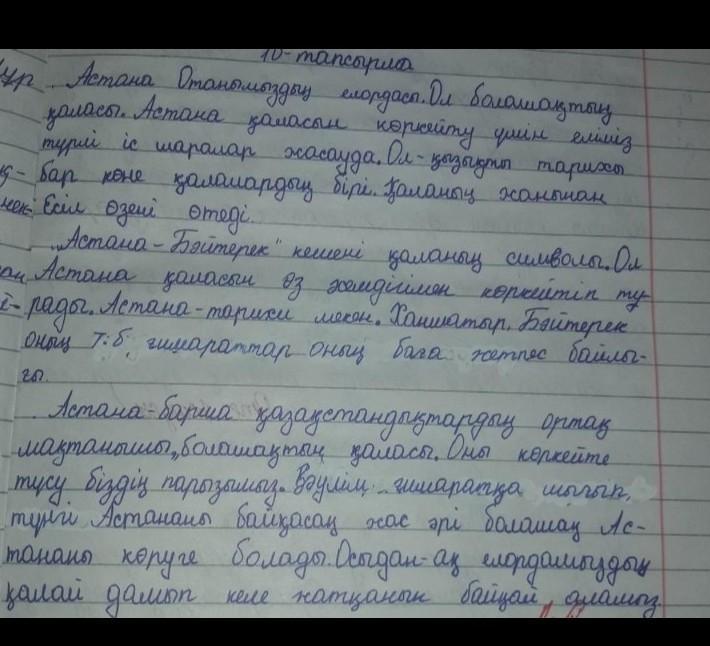 10-тапсырма
Астана Отанымыздың елордасы. Ол болашақтың
қаласы. Астана қаласын көркейту үшін еліміз
түрлі іс шаралар жасауда. Ол-қызықты тарихы
бар көне қалалардың бірі. Қаланың жанынан
Есіл өзені өтеді.
„Астана-Бәйтерек" кешені қаланың символы. Ол
Астана қаласын өз әсемдігімен көркейтіп ту-
рады. Астана-тарихи мекен. Ханшатыр, Бәйтерек
оның т.б. ғимараттар оның баға жетпес байлы-
ғы.
Астана-барша қазақстандықтардың ортақ
мақтанышы, болашақтың қаласы. Оны көркейте
түсу біздің парызымыз. Зәулім ғимаратқа шығып,
түнгі Астананы байқасаң жас әрі болашақ Ас-
тананы көруге болады. Осыдан-ақ елордамыздың
қалай дамып келе жатқанын байқай аламыз.